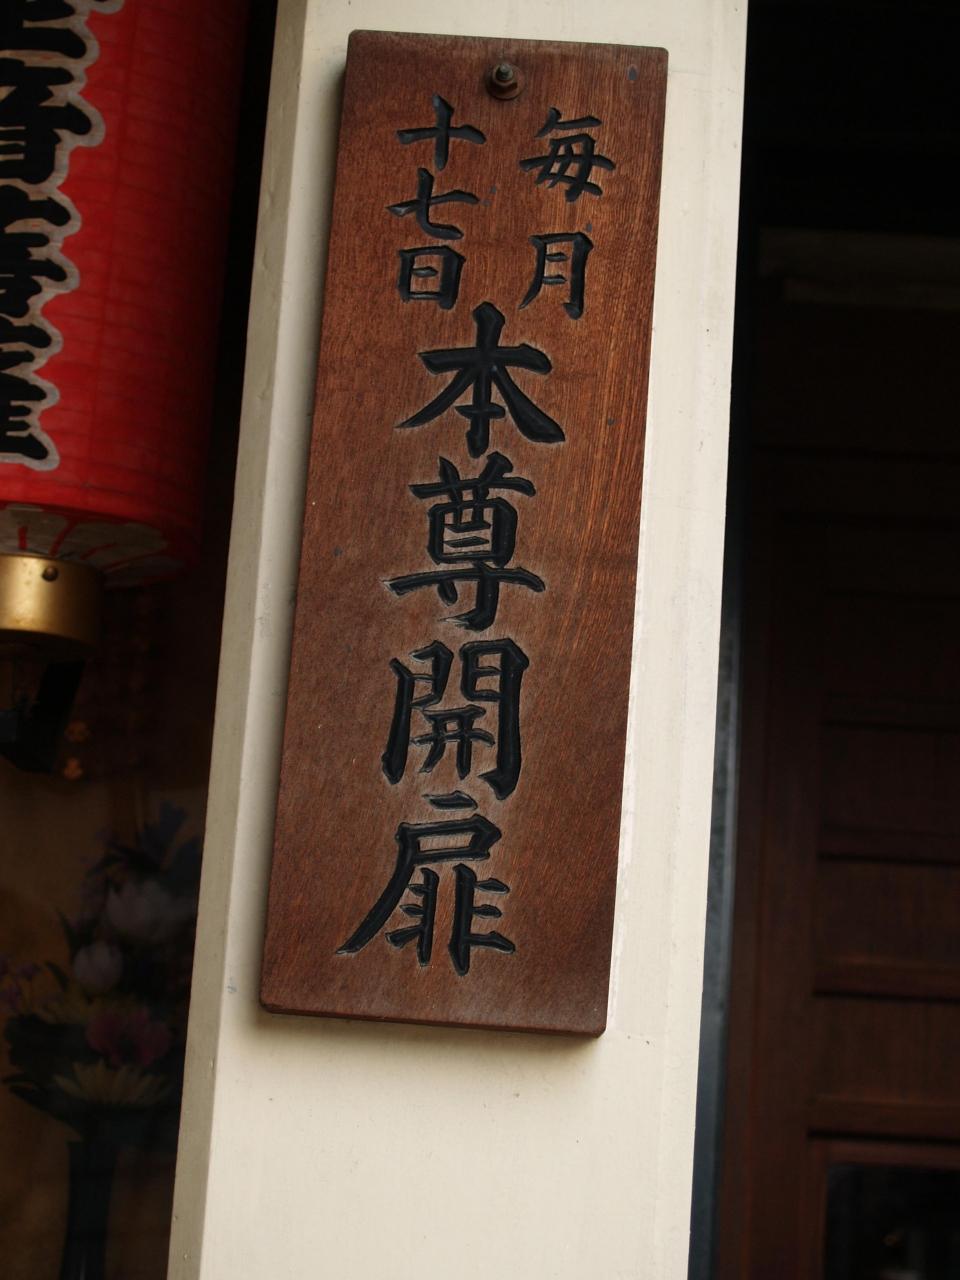 毎月
十七日
本尊開扉